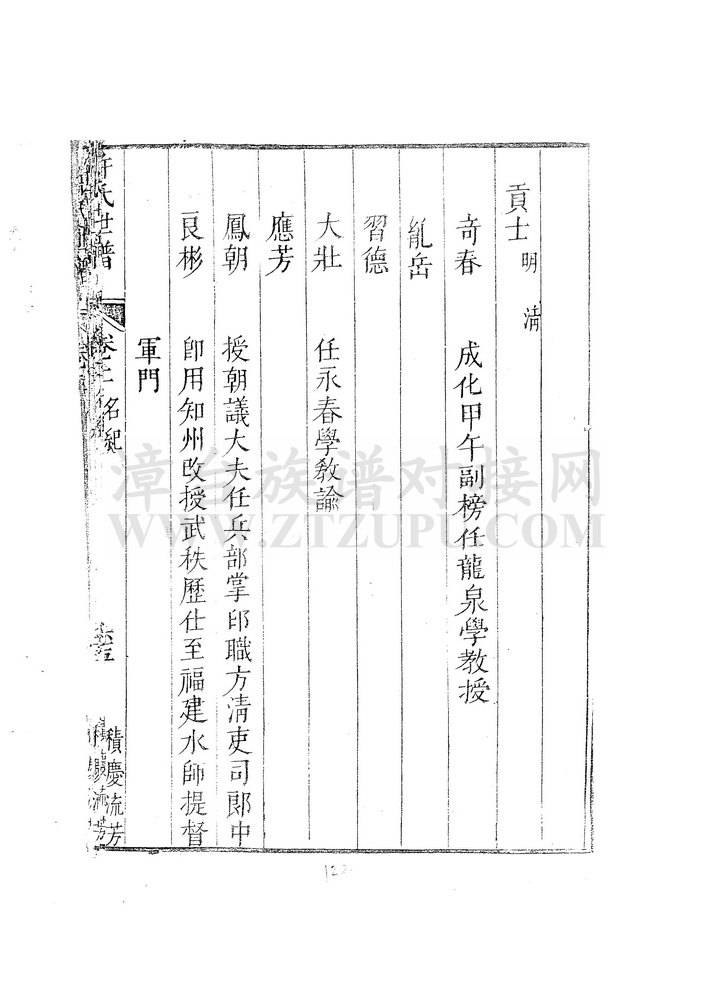 貢士 明 清
奇春 成化甲午副榜任龍泉學教授
胤岳
習德
大壯 任永春學教諭
應芳
鳳朝 授朝議大夫任兵部掌印職方清吏司郎中
良彬 即用知州改授武秩歷仕至福建水師提督
軍門
許氏世譜 卷 名紀 積慶流芳
漳台族谱对接网
WWW.ZTZUPU.COM
122